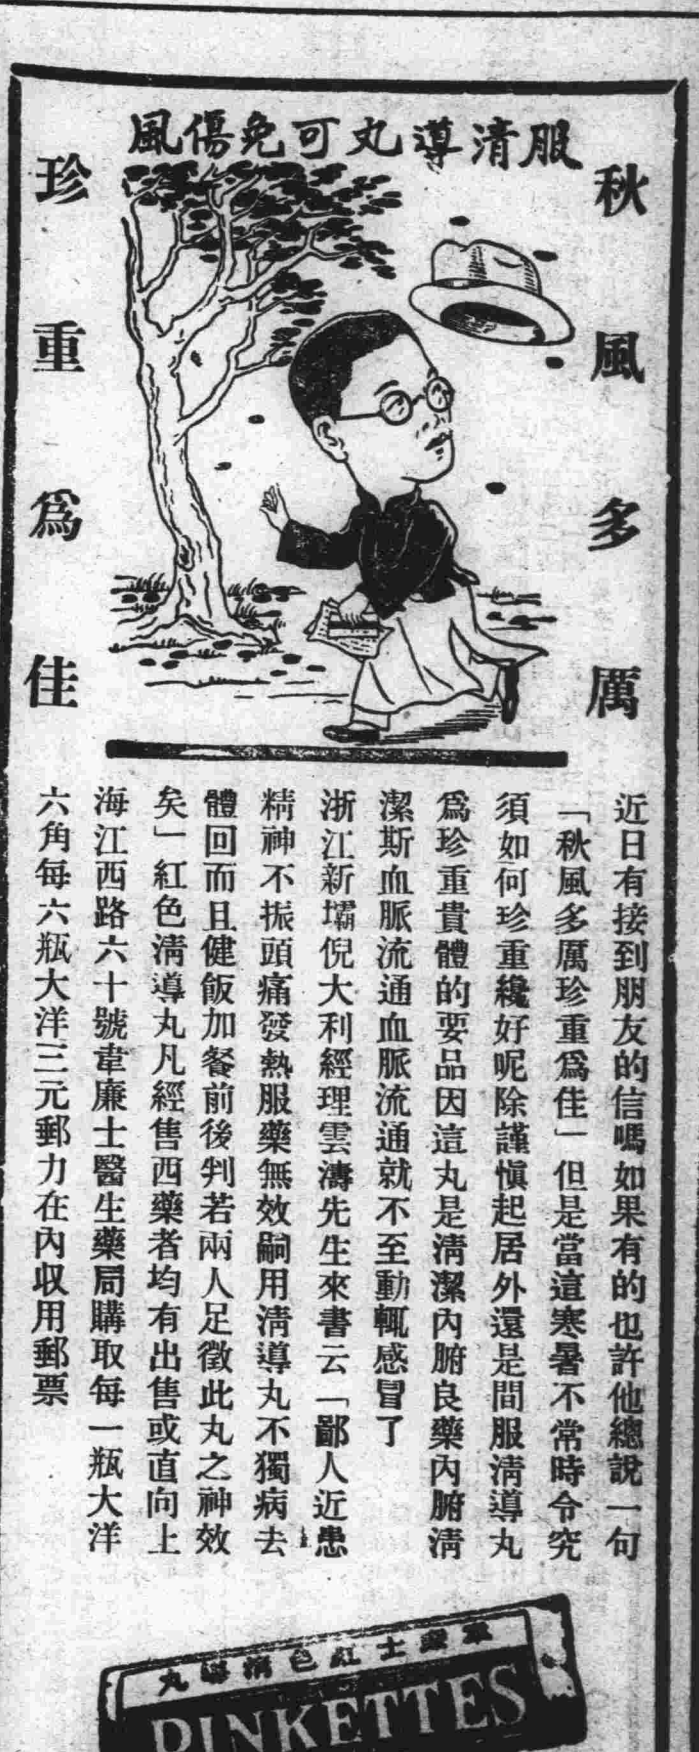 服清導丸可免傷風
秋風多厲
珍重爲佳
近日有接到朋友的信嗎如果有的也許他總說一句
「秋風多厲珍重爲佳」但是當這寒暑不常時令究
須如何珍重纔好呢除謹愼起居外還是間服清導丸
爲珍重貴體的要品因這丸是淸潔內腑良藥內腑淸
潔斯血脈流通血脈流通就不至動輒感冒了
浙江新壩倪大利經理雲濤先生來書云「鄙人近患
精神不振頭痛發熱服藥無效嗣用淸導丸不獨病去
體回而且健飯加餐前後判若兩人足徵此丸之神效
矣」紅色淸導丸凡經售西藥者均有出售或直向上
海江西路六十號韋廉士醫生藥局購取每一瓶大洋
六角每六瓶大洋三元郵力在內收用郵票
韋廉士紅色淸導丸
PINKETTES